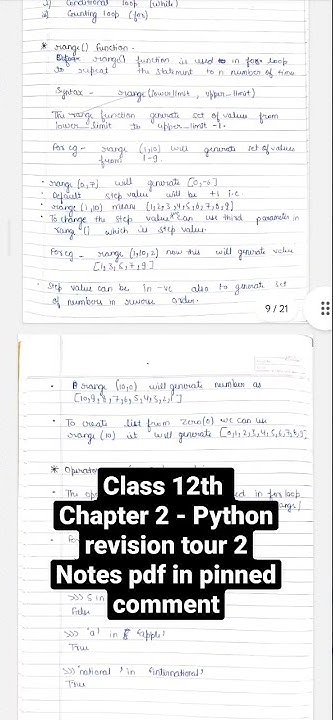 i) Conditional loop (while)
ii) Counting loop (for)
* range() function -
range() function is used to in for loop
to repeat the statement to n number of time
Syntax - range (lower limit, upper-limit)
The range function generate set of values from
lower limit to upper-limit -1.
For eg - range (1,10) will generate set of values
from 1-9.
• range (0,7) will generate [0,-6]
• Default step value will be +1 i.e
• range (1,10) means [1,2,3,4,5,6,7,8,9]
• To change the step value we can use third parameter in
rang () which is step value.
For eg - range (1,10,2) now this will generate value
[1,3,5,7,9]
• Step value can be in -ve also to generate set
of numbers in reverse order.
9 / 21
• range (10,0) will generate number as
[10,9,8,7,6,5,4,3,2,1]
• To create list from zero(0) we can use
range (10) it will generate [0,1,2,3,4,5,6,7,8,9]
* Operator
• The op ed in for loop
Class 12th
Chapter 2 - Python
revision tour 2
Notes pdf in pinned
comment
>>> 5 in
False
>>> 'a' in 'apple'
True
>>> 'national' in 'international'
True